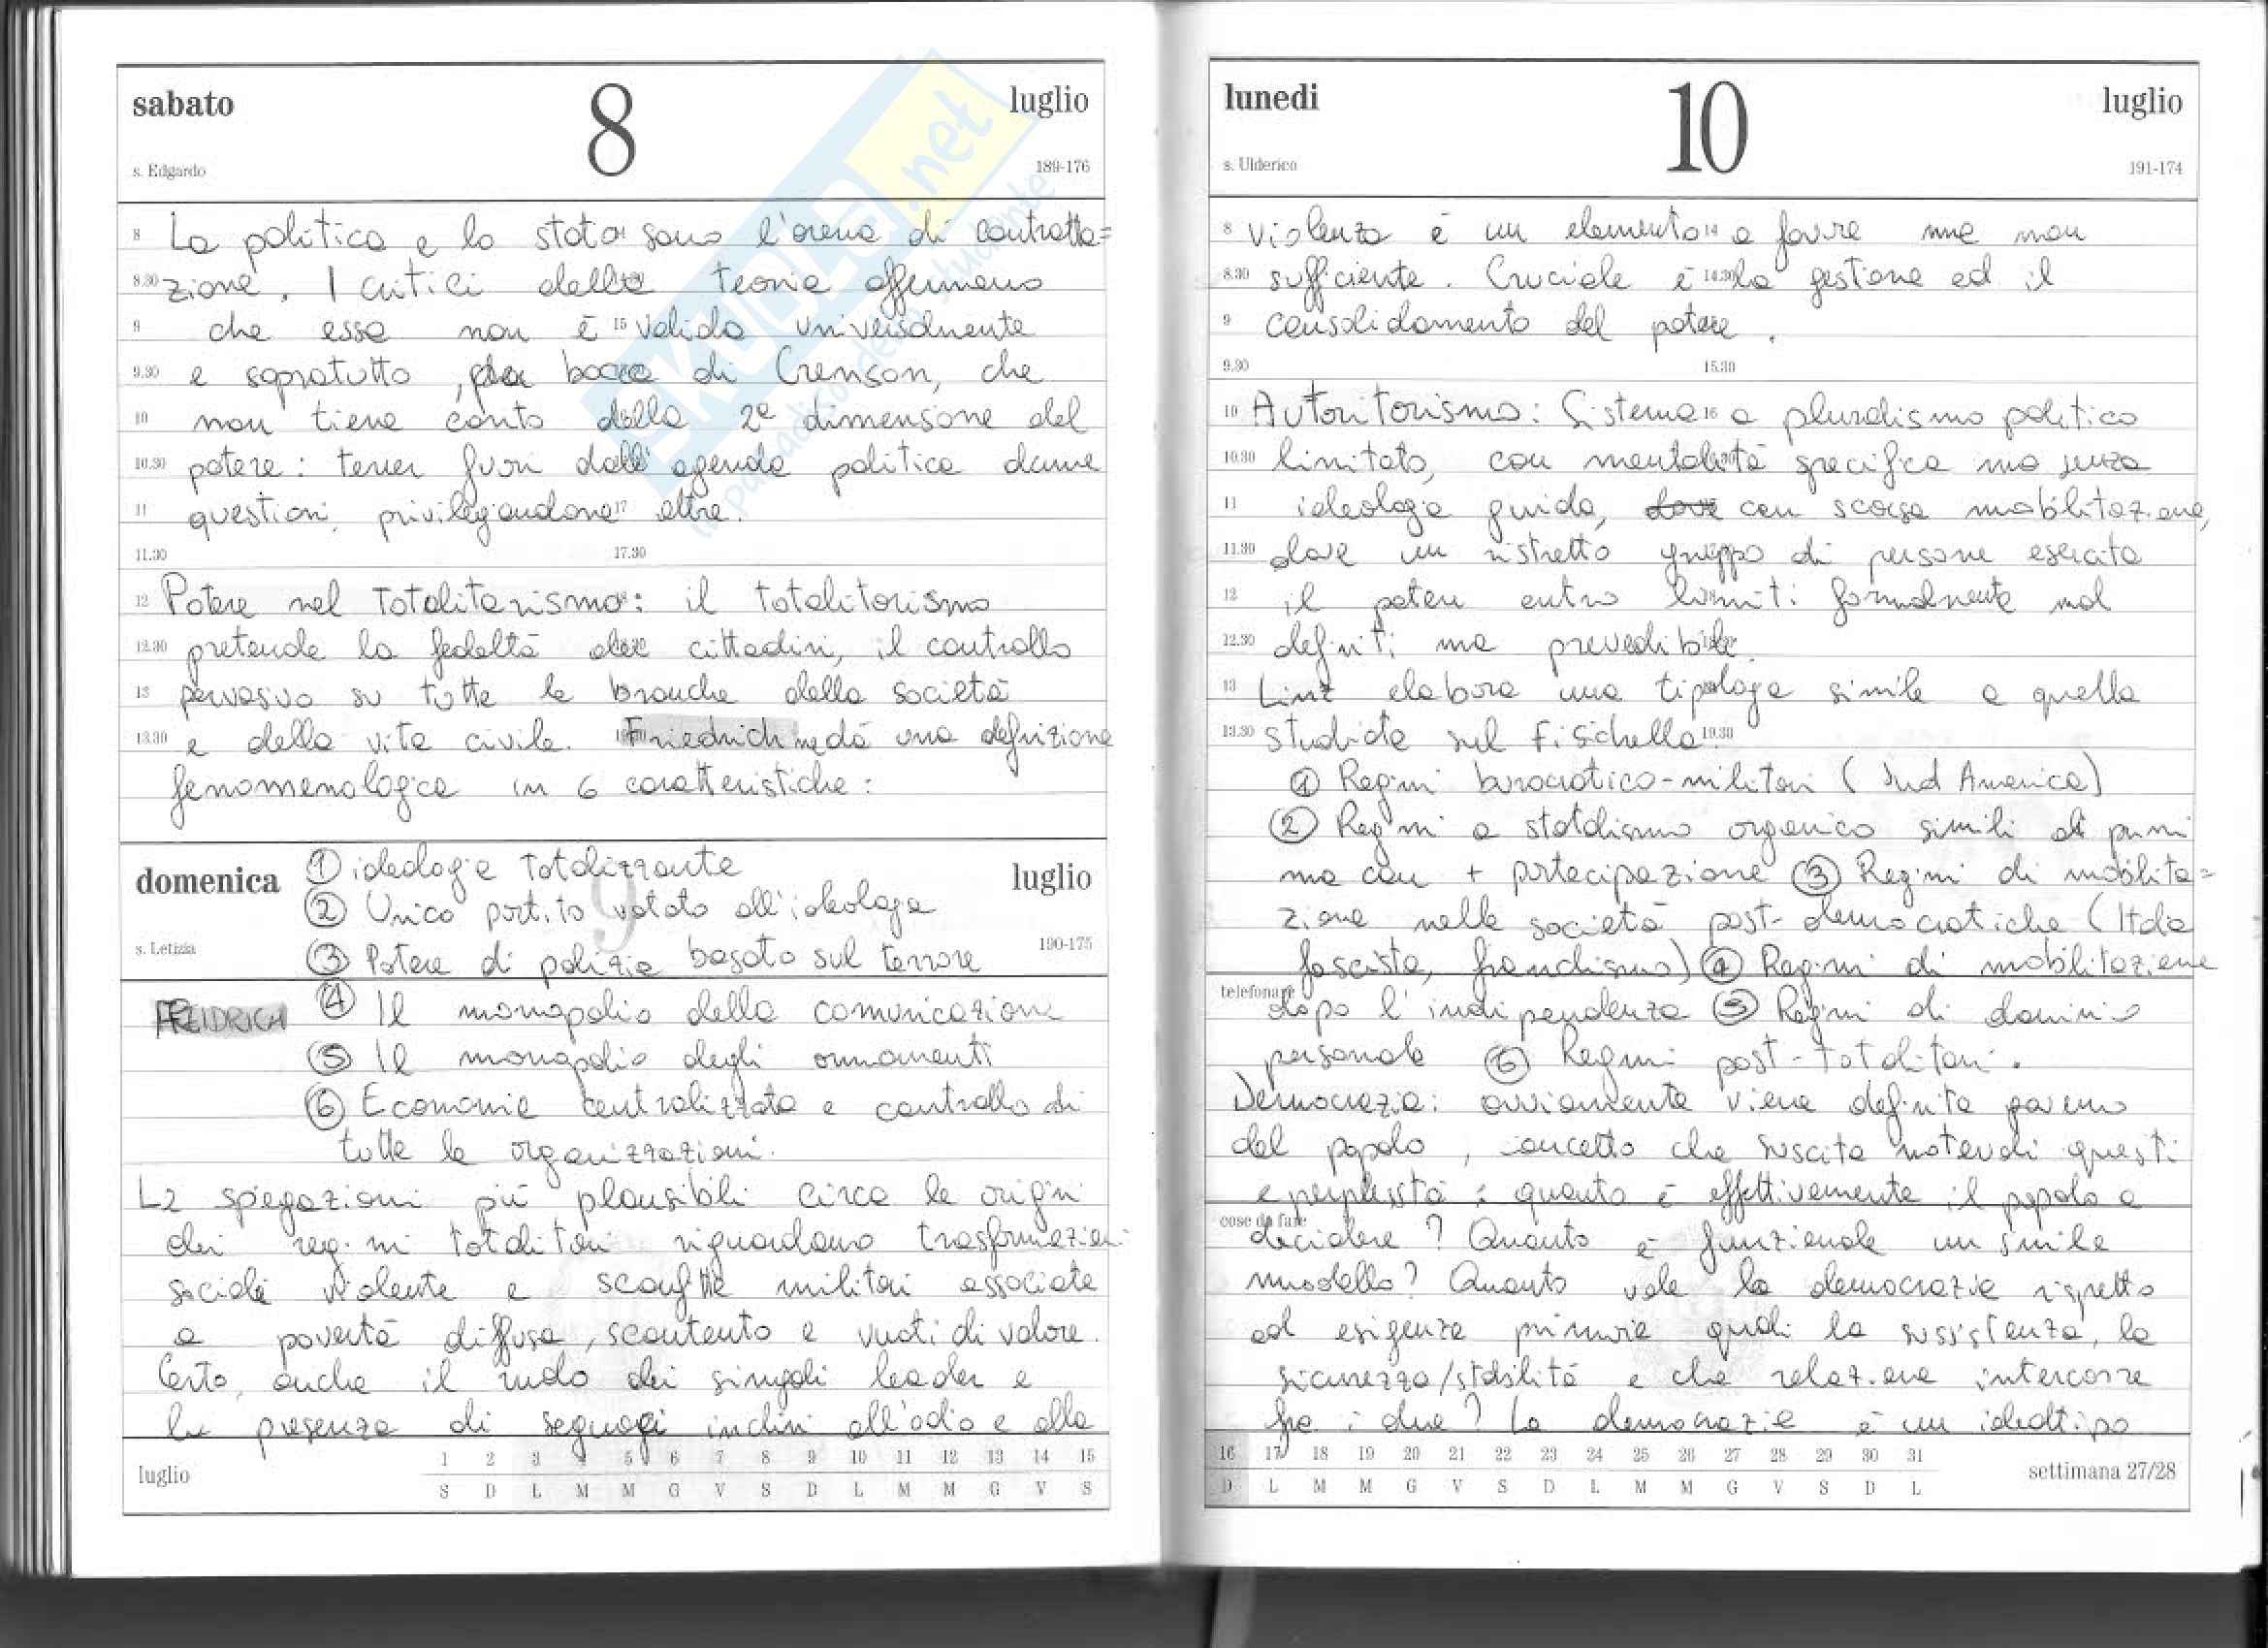 sabato 8 luglio
s. Edgardo 189-176
8 La politica e lo stato sono l'arena di contratta=
8.30 zione. I critici della teoria affermano
9 che essa non è 15 valida universalmente
9.30 e sopratutto, bocca di Crenson, che
10 non tiene conto della 2ª dimensione del
10.30 potere: tener fuori dall'agenda politica alcune
11 questioni, privilegiandone 17 altre.
11.30 17.30
12 Potere nel Totalitarismo: il totalitarismo
12.30 pretende la fedeltà dei cittadini, il controllo
13 pervasivo su tutte le branche della società
13.30 e della vita civile. Friedrich ne dà una definizione
fenomenologica in 6 caratteristiche:
domenica 9 luglio
s. Letizia 190-175
① ideologia totalizzante
② Unico partito votato all'ideologia
③ Potere di polizia basato sul terrore
FREIDRICH ④ Il monopolio della comunicazione
⑤ Il monopolio degli armamenti
⑥ Economia centralizzata e controllo di
tutte le organizzazioni.
Le spiegazioni più plausibili circa le origini
dei regimi totalitari riguardano trasformazioni
sociali violente e sconfitte militari associate
a povertà diffusa, scontento e vuoti di valore.
Certo, anche il ruolo dei singoli leader e
la presenza di seguaci inclini all'odio e alla
luglio 1 2 3 4 5 6 7 8 9 10 11 12 13 14 15
S D L M M G V S D L M M G V S
lunedì 10 luglio
s. Ulderico 191-174
8 violenza è un elemento 14 a favore ma non
8.30 sufficiente. Cruciale è 14.30 la gestione ed il
9 consolidamento del potere.
9.30 15.30
10 Autoritarismo: Sistema 16 a pluralismo politico
10.30 limitato, con mentalità specifica ma senza
11 ideologia guida, dove con scarsa mobilitazione,
11.30 dove un ristretto gruppo di persone esercita
12 il potere entro limiti formalmente mal
12.30 definiti ma prevedibili.
13 Linz elabora una tipologia simile a quella
13.30 studiata sul Fisichella. 19.30
① Regimi burocratico-militari (Sud America)
② Regimi a statalismo organico simili ai primi
ma con + partecipazione ③ Regimi di mobilita=
zione nelle società post-democratiche (Italia
fascista, franchismo) ④ Regimi di mobilitazione
telefonare
dopo l'indipendenza ⑤ Regimi di dominio
personale ⑥ Regimi post-totalitari.
Democrazia: ovviamente viene definita governo
del popolo, concetto che suscita notevoli quesiti
e perplessità: quanto è effettivamente il popolo a
cose da fare
decidere? Quanto è funzionale un simile
modello? Quanto vale la democrazia rispetto
ad esigenze primarie quali la sussistenza, la
sicurezza/stabilità e che relazione intercorre
fra i due? La democrazia è un idealtipo
16 17 18 19 20 21 22 23 24 25 26 27 28 29 30 31
D L M M G V S D L M M G V S D L
settimana 27/28
SKUOLA.net